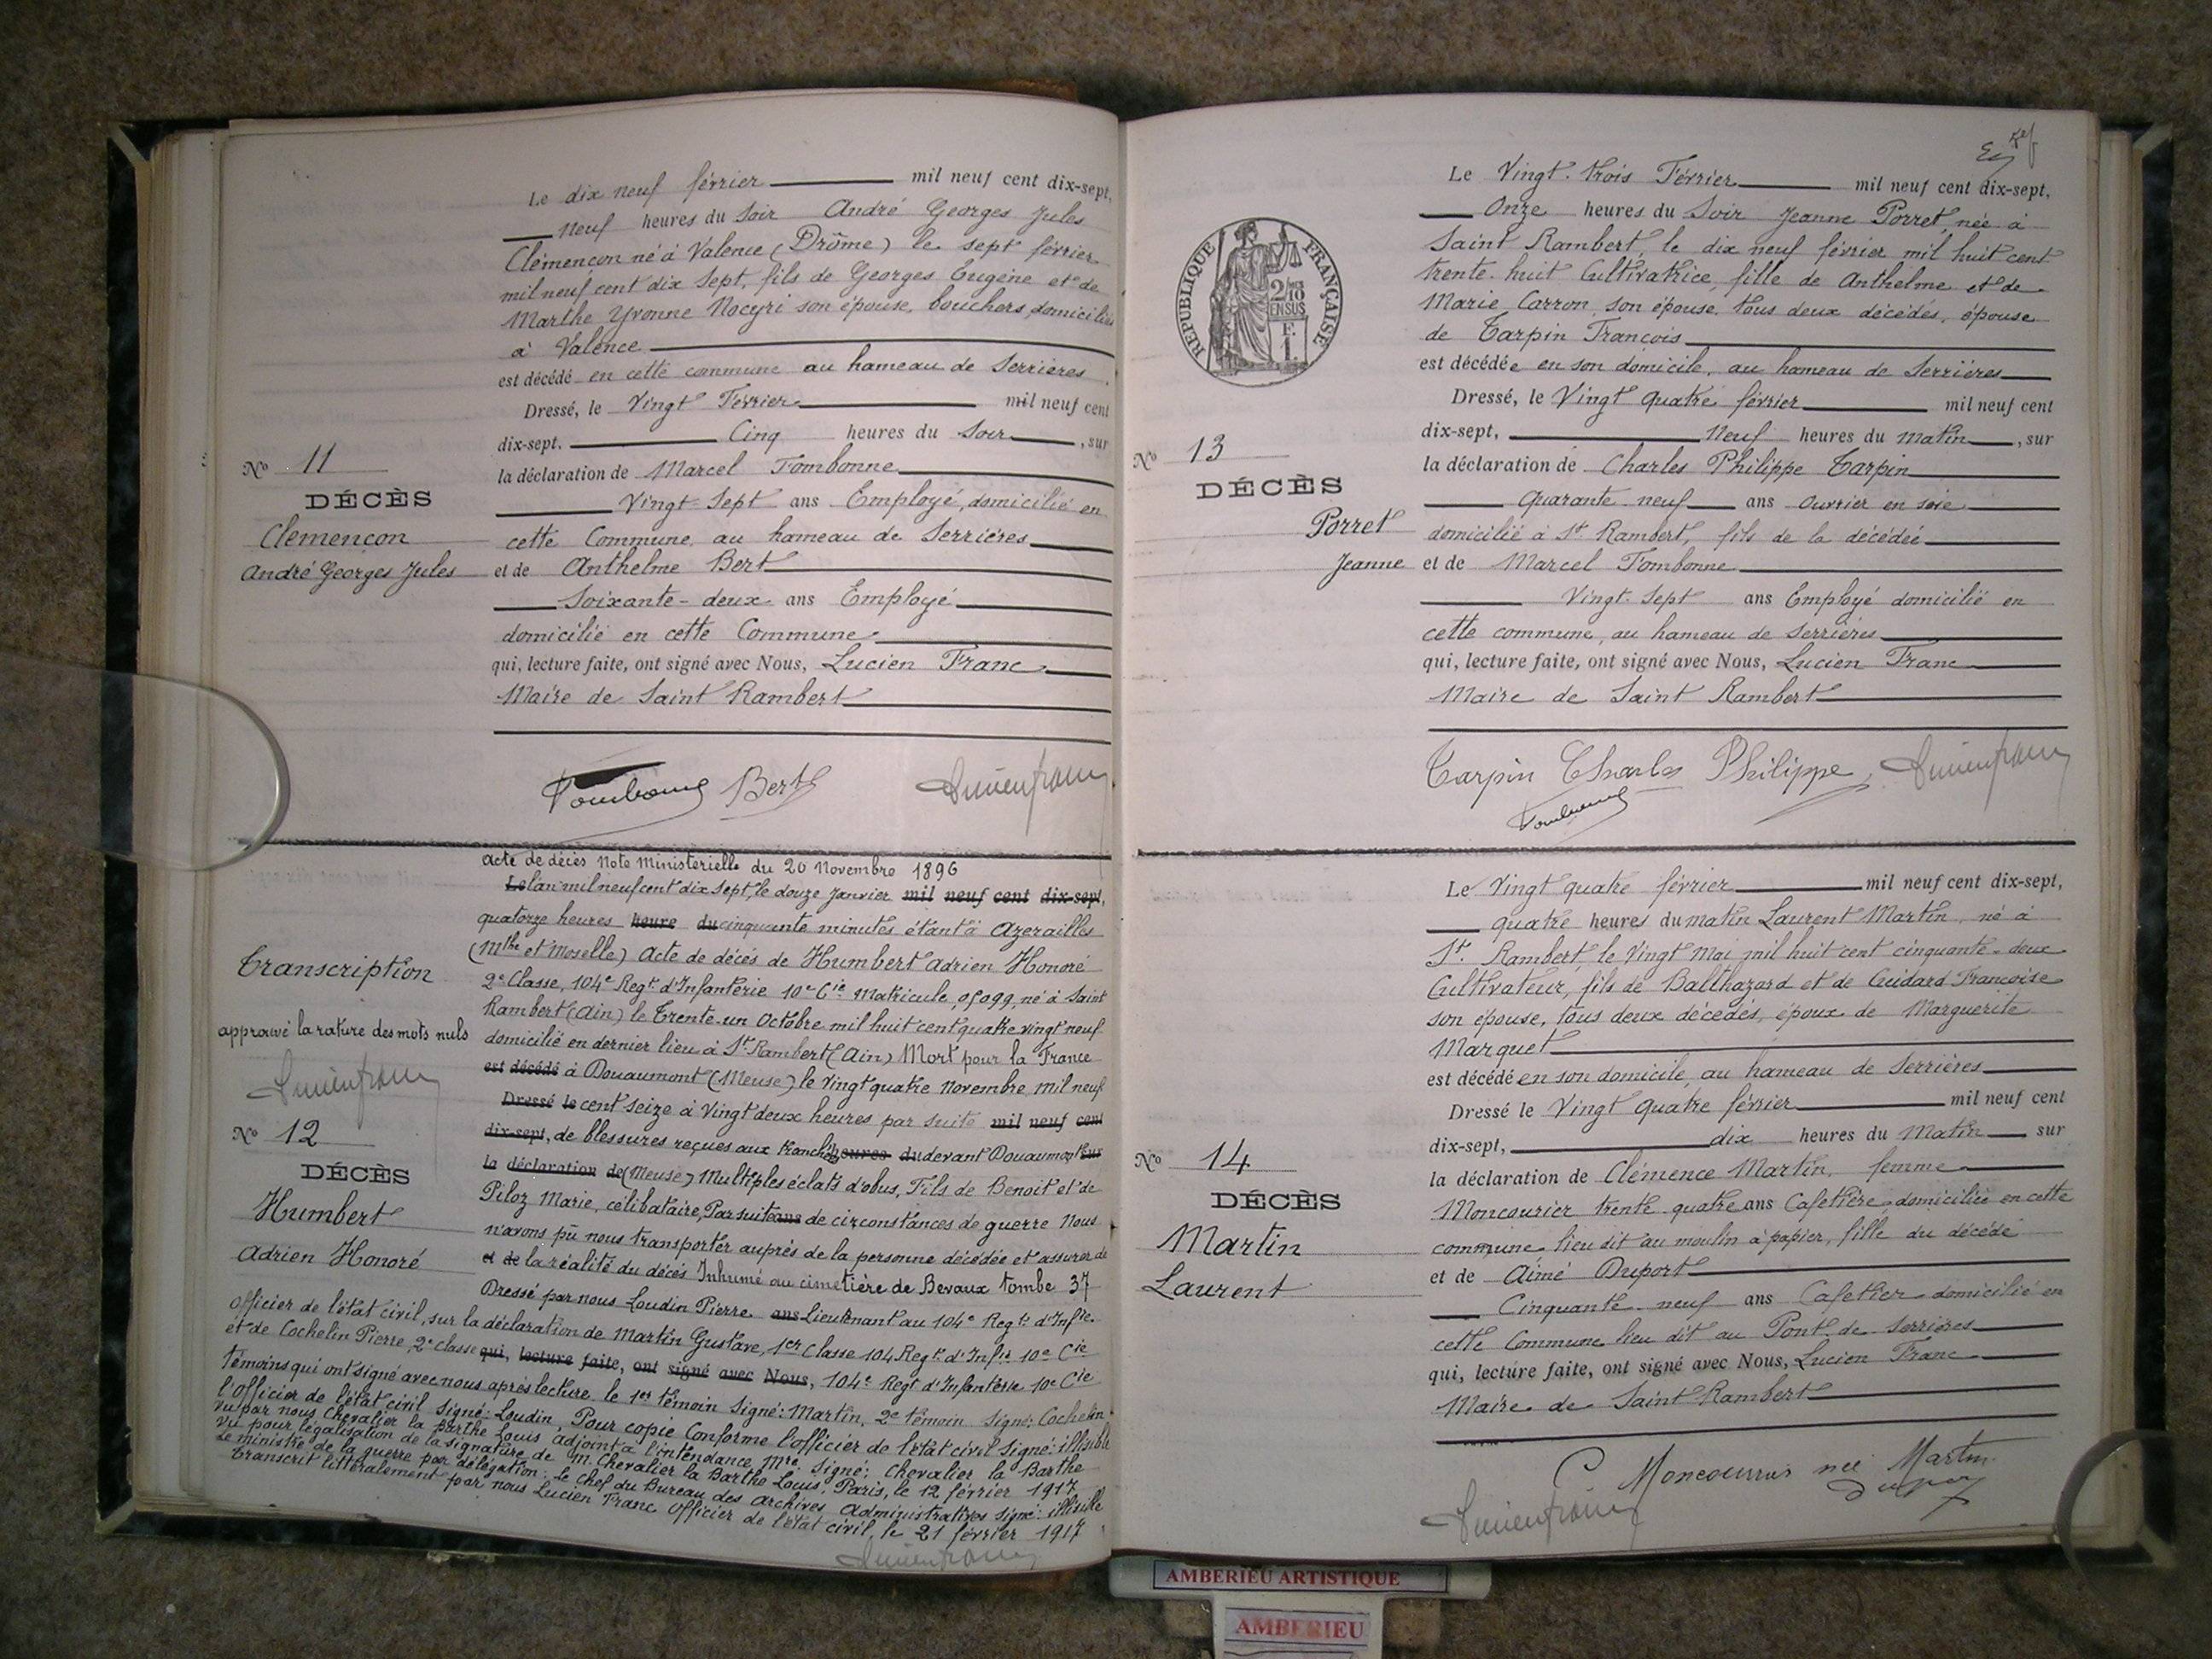 Le dix neuf février mil neuf cent dix-sept,
neuf heures du soir André Georges Jules
Clémençon né à Valence (Drôme) le sept février
mil neuf cent dix sept, fils de Georges Eugène et de
Marthe Yvonne Noceyri son épouse, bouchers, domiciliés
à Valence
est décédé en cette commune au hameau de Serrières
Dressé, le Vingt Février mil neuf cent
dix-sept. Cinq heures du Soir, sur
la déclaration de Marcel Tombonne
Vingt-Sept ans Employé, domicilié en
cette Commune au hameau de Serrières
et de Anthelme Bert
Soixante-deux ans Employé
domicilié en cette Commune
qui, lecture faite, ont signé avec Nous, Lucien Franc
Maire de Saint Rambert
Nº 11
DÉCÈS
Clémençon
André Georges Jules
Tombonne Bert Lucien franc
acte de décès Note Ministerielle du 20 Novembre 1896
Le l'an mil neuf cent dix Sept, le douze Janvier mil neuf cent dix-sept,
quatorze heures heure du cinquante minutes étant à Azerailles
(Mthe et Moselle) Acte de décès de Humbert Adrien Honoré
2e Classe, 104e Regt d'Infanterie 10e Cie Matricule, 05099, né à Saint
Rambert (Ain) le Trente-un Octobre mil huit cent quatre vingt neuf
domicilié en dernier lieu à St Rambert (Ain) Mort pour la France
est décédé à Douaumont (Meuse) le vingt quatre Novembre mil neuf
Dressé le cent seize à vingt deux heures par suite mil neuf cent
dix-sept, de blessures reçues aux tranchées heures du devant Douaumont sur
la déclaration de (Meuse) Multiples éclats d'obus, Fils de Benoit et de
Piloz Marie, célibataire, Par suite ans de circonstances de guerre Nous
n'avons pû nous transporter auprès de la personne décédée et assurer de
et de la réalité du décès Inhumé au cimetière de Bevaux tombe 37
Dressé par nous Loudin Pierre ans Lieutenant au 104e Regt d'Infie
Officier de l'état civil, sur la déclaration de Martin Gustave, 1er Classe 104 Regt d'Infie 10e Cie
et de Cochelin Pierre, 2e Classe qui, lecture faite, ont signé avec Nous, 104e Regt d'Infanterie 10e Cie
Témoins qui ont signé avec nous après lecture le 1er témoin Signé: Martin, 2e témoin Signé: Cochelin
l'Officier de l'état civil Signé: Loudin, Pour copie Conforme l'officier de l'état civil Signé: illisible
Vu par nous Chevalier la Barthe Louis adjoint à l'intendance Mre. Signé: Chevalier la Barthe
Vu pour légalisation de la signature de M. Chevalier la Barthe Louis, Paris, le 12 février 1917
Le ministre de la guerre par délégation. Le chef du Bureau des Archives Administratives Signé: illisible
Transcrit littéralement par nous Lucien Franc Officier de l'état civil, le 21 février 1917
Lucien franc
Transcription
approuvé la rature des mots nuls
Lucien franc
Nº 12
DÉCÈS
Humbert
Adrien Honoré
Le Vingt-trois Février mil neuf cent dix-sept,
Onze heures du Soir Jeanne Porret, née à
Saint Rambert, le dix neuf février mil huit cent
trente-huit Cultivatrice, fille de Anthelme et de
Marie Carron, son épouse, tous deux décédés, épouse
de Tarpin François
est décédée en son domicile, au hameau de Serrières
Dressé, le Vingt quatre février mil neuf cent
dix-sept, Neuf heures du matin, sur
la déclaration de Charles Philippe Tarpin
quarante-neuf ans ouvrier en soie
domicilié à St Rambert, fils de la décédée
et de Marcel Tombonne
Vingt-Sept ans Employé domicilié en
cette commune, au hameau de Serrières
qui, lecture faite, ont signé avec Nous, Lucien Franc
Maire de Saint Rambert
REPUBLIQUE FRANÇAISE
2/10
EN SUS
F.
1.
Nº 13
DÉCÈS
Porret
Jeanne
Tarpin Charles Philippe Lucien franc
Tombonne
Le Vingt quatre février mil neuf cent dix-sept,
quatre heures du matin Laurent Martin, né à
St. Rambert, le Vingt Mai mil huit cent cinquante-deux
Cultivateur, fils de Balthazard et de Guidard Françoise
son épouse, tous deux décédés, époux de Marguerite
Marquet
est décédé en son domicile, au hameau de Serrières
Dressé le Vingt quatre février mil neuf cent
dix-sept, dix heures du Matin sur
la déclaration de Clémence Martin, femme
Moncourier trente-quatre ans Cafetière, domiciliée en cette
commune lieu dit au moulin à papier, fille du décédé
et de Aimé Duport
Cinquante-neuf ans Cafetier domicilié en
cette Commune lieu dit au Pont de Serrières
qui, lecture faite, ont signé avec Nous, Lucien Franc
Maire de Saint Rambert
Nº 14
DÉCÈS
Martin
Laurent
C Moncourrier née Martin
Duport
Lucien franc
AMBERIEU ARTISTIQUE
AMBERIEU